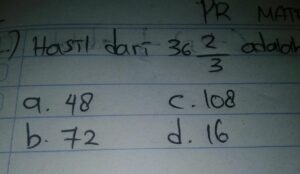 PR MATE
.) Hasil dari 36 2/3 adalah
a. 48 c. 108
b. 72 d. 16